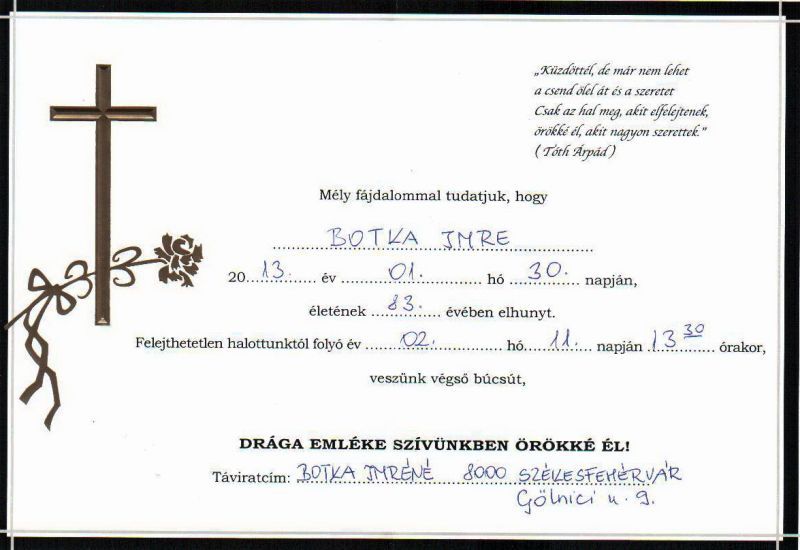 „Küzdöttél, de már nem lehet
a csend ölel át és a szeretet
Csak az hal meg, akit elfelejtenek,
örökké él, akit nagyon szerettek."
( Tóth Árpád )
Mély fájdalommal tudatjuk, hogy
BOTKA IMRE
2013. év 01. hó 30. napján,
életének 83. évében elhunyt.
Felejthetetlen halottunktól folyó év 02. hó 11. napján 13 30 órakor,
veszünk végső búcsút,
DRÁGA EMLÉKE SZÍVÜNKBEN ÖRÖKKÉ ÉL!
Táviratcím: BOTKA IMRÉNÉ 8000 SZÉKESFEHÉRVÁR
Gölnici u. 9.